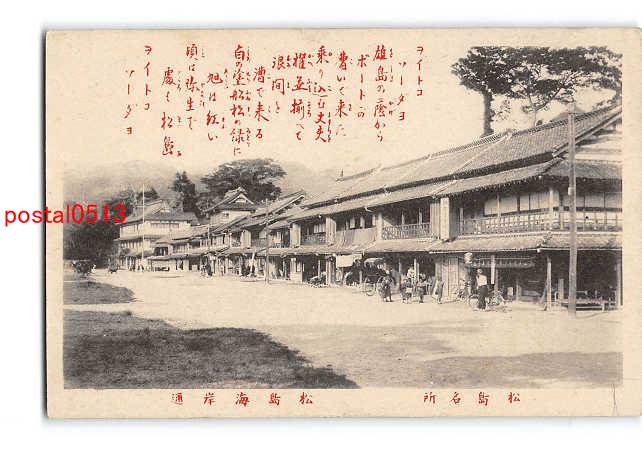 ヲイトコ
ソーダヨ
雄島の蔭から
ボートの
著いて来た
乗り込む丈夫
櫂並揃へて
浪間を
漕で来る
白の塗船松の緑に
旭は紅い
頃は弥生で
處は松島
ヲイトコ
ソーダヨ
松島名所
松島海岸通
postal0513